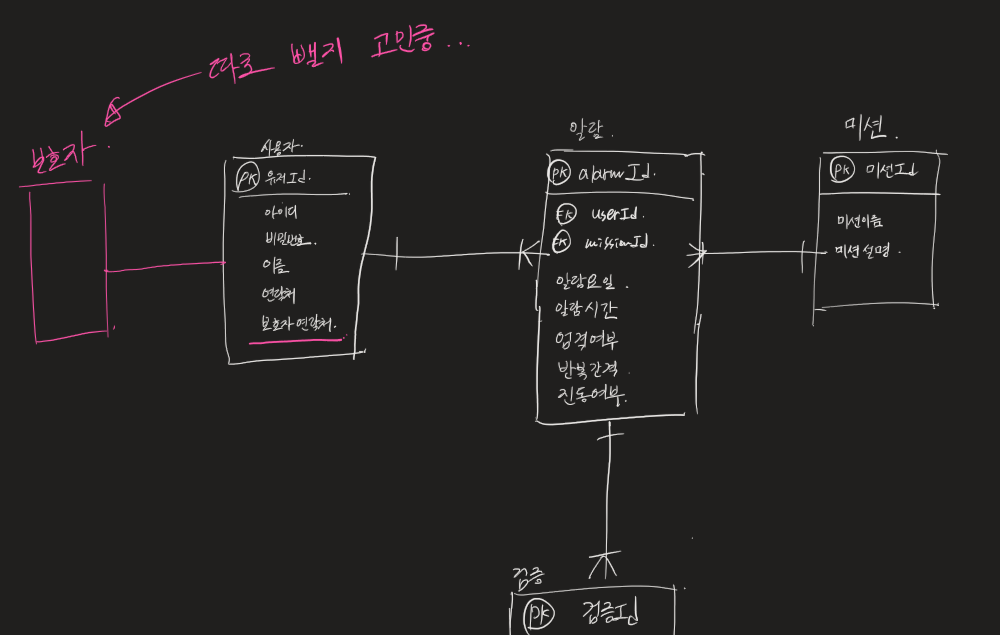 따로 뺄지 고민중...
보호자.
사용자.
PK 유저Id.
아이디
비밀번호.
이름
연락처
보호자 연락처.
알람.
PK alarmId.
FK userId.
FK missionId.
알람요일.
알람시간
엄격여부
반복간격.
진동여부.
미션.
PK 미션Id
미션이름
미션 설명.
검증
PK 검증Id